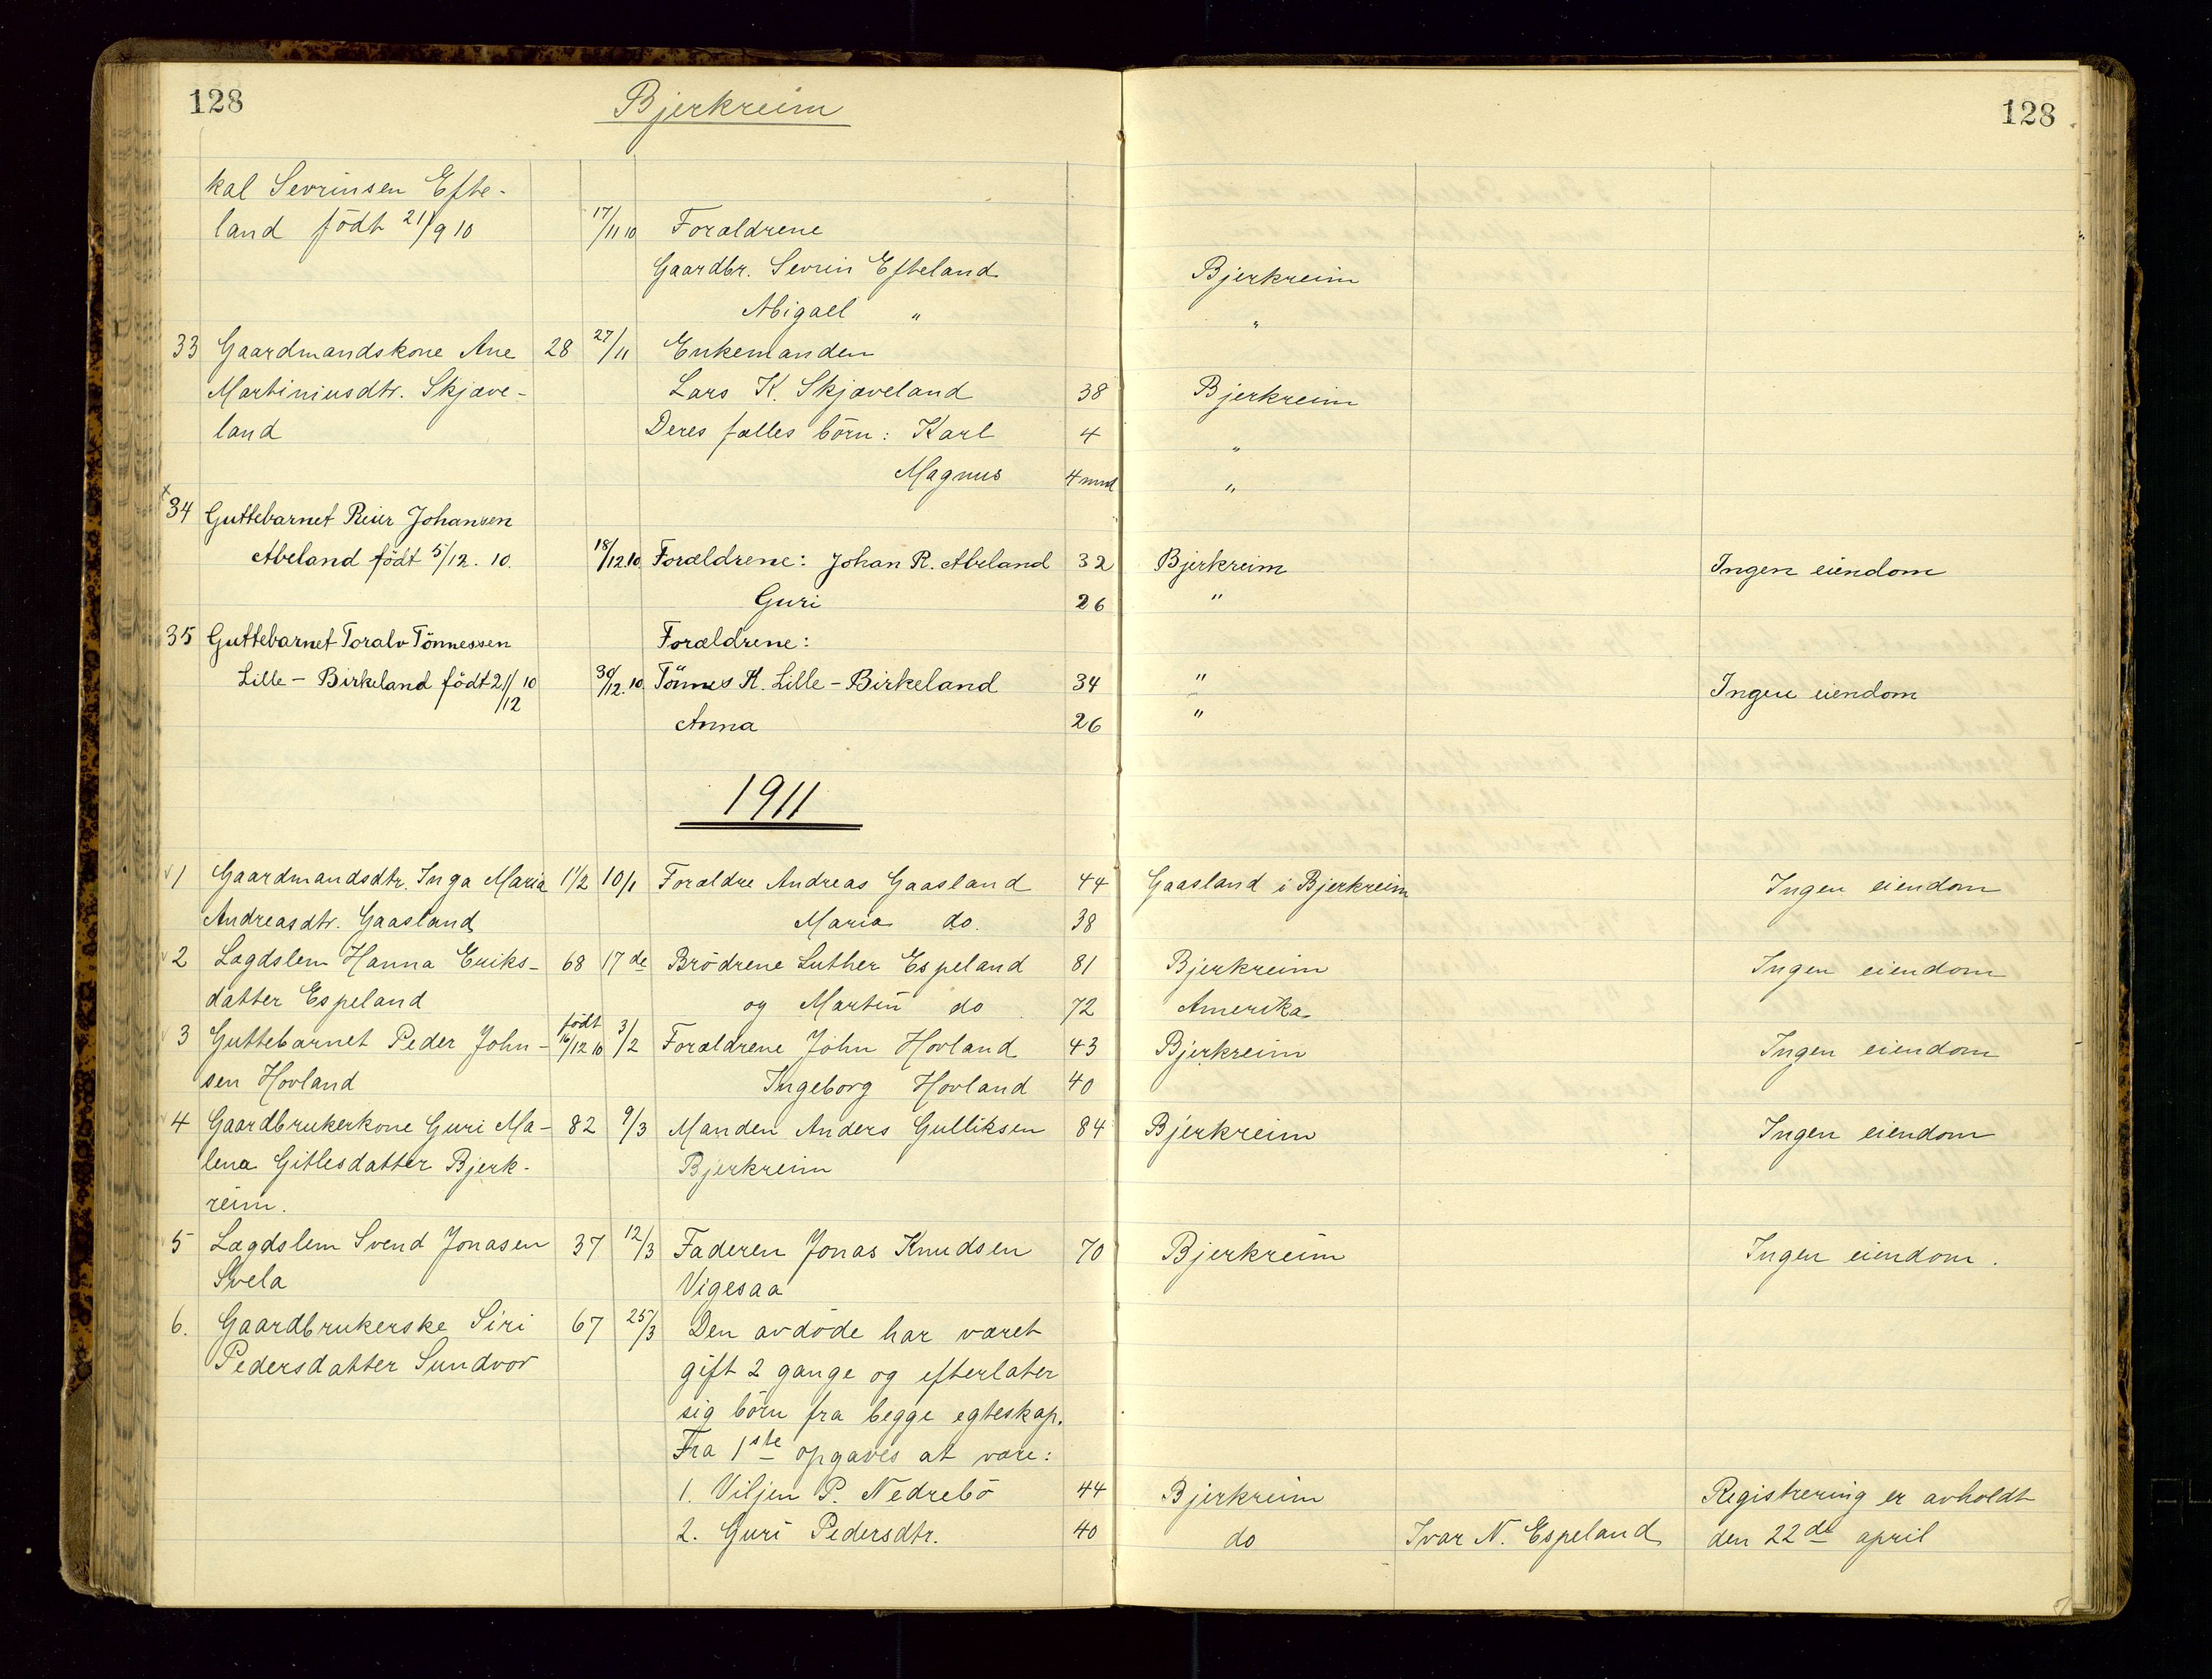 128 Bjerkreim 128
kal Sevrinsen Efte-
land födt 21/9 10 17/11 10 Forældrene
Gaardbr. Sevrin Efteland Bjerkreim
Abigael " "
33 Gaardmandskone Ane 28 27/11 Enkemanden
Martiniusdtr. Skjæve- Lars K. Skjæveland 38 Bjerkreim
land Deres fælles börn: Karl 4 "
Magnus 4 mnd "
x
34 Guttebarnet Reier Johansen
Abeland födt 5/12. 10. 18/12.10 Forældrene: Johan R. Abeland 32 Bjerkreim Ingen eiendom
Guri 26 "
35 Guttebarnet Toralv Tönnessen Forældrene:
Lille-Birkeland födt 21/12 10 30/12.10 Tönnes K. Lille-Birkeland 34 " Ingen eiendom
Anna 26 "
1911
√1 Gaardmandsdtr. Inga Maria 1 1/2 10/1 Forældre Andreas Gaasland 44 Gaasland i Bjerkreim Ingen eiendom
Andreasdtr. Gaasland Maria do. 38
√2 Lægdslem Hanna Eriks- 68 17de Brödrene Luther Espeland 81 Bjerkreim Ingen eiendom
datter Espeland og Martin do 72 Amerika
√3 Guttebarnet Peder John- födt 16/12 10 3/2 Forældrene John Hovland 43 Bjerkreim Ingen eiendom
sen Hovland Ingeborg Hovland 40
√4 Gaardbrukerkone Guri Ma- 82 9/3 Manden Anders Gulliksen 84 Bjerkreim Ingen eiendom
lena Gitlesdatter Bjerk- Bjerkreim
reim.
5 Lægdslem Svend Jonasen 37 12/3 Faderen Jonas Knudsen 70 Bjerkreim Ingen eiendom.
Svela Vigesaa
6. Gaardbrukerske Siri 67 25/3 Den avdöde har været
Pedersdatter Sundvor gift 2 gange og efterlater
sig börn fra begge egteskap.
Fra 1ste opgaves at være:
1. Viljen P. Nedrebö 44 Bjerkreim Registrering er avholdt
2. Guri Pedersdtr. 40 do Ivar N. Espeland den 22de april